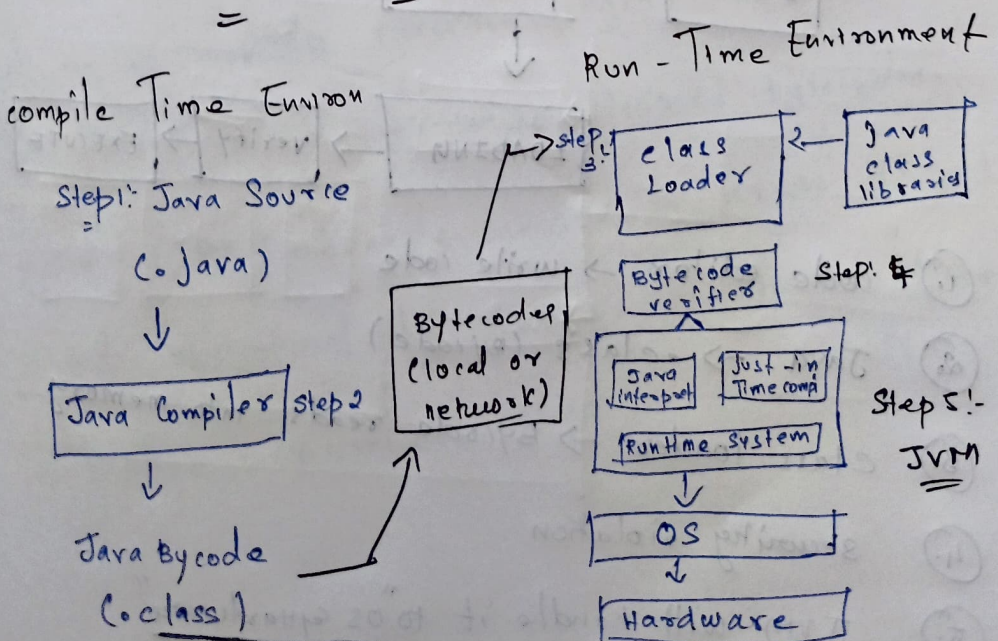 compile Time Environ
Step1:- Java Source
(.Java)
Java Compiler
Step2
Java Bycode
(.class)
Bytecodes
(local or
network)
Run - Time Environment
Step
3:-
class
Loader
Java
class
libraries
Bytecode
verifier
Step: 4
Java
interpret
Just-in
Time comp
Runtime System
Step 5:-
JVM
OS
Hardware